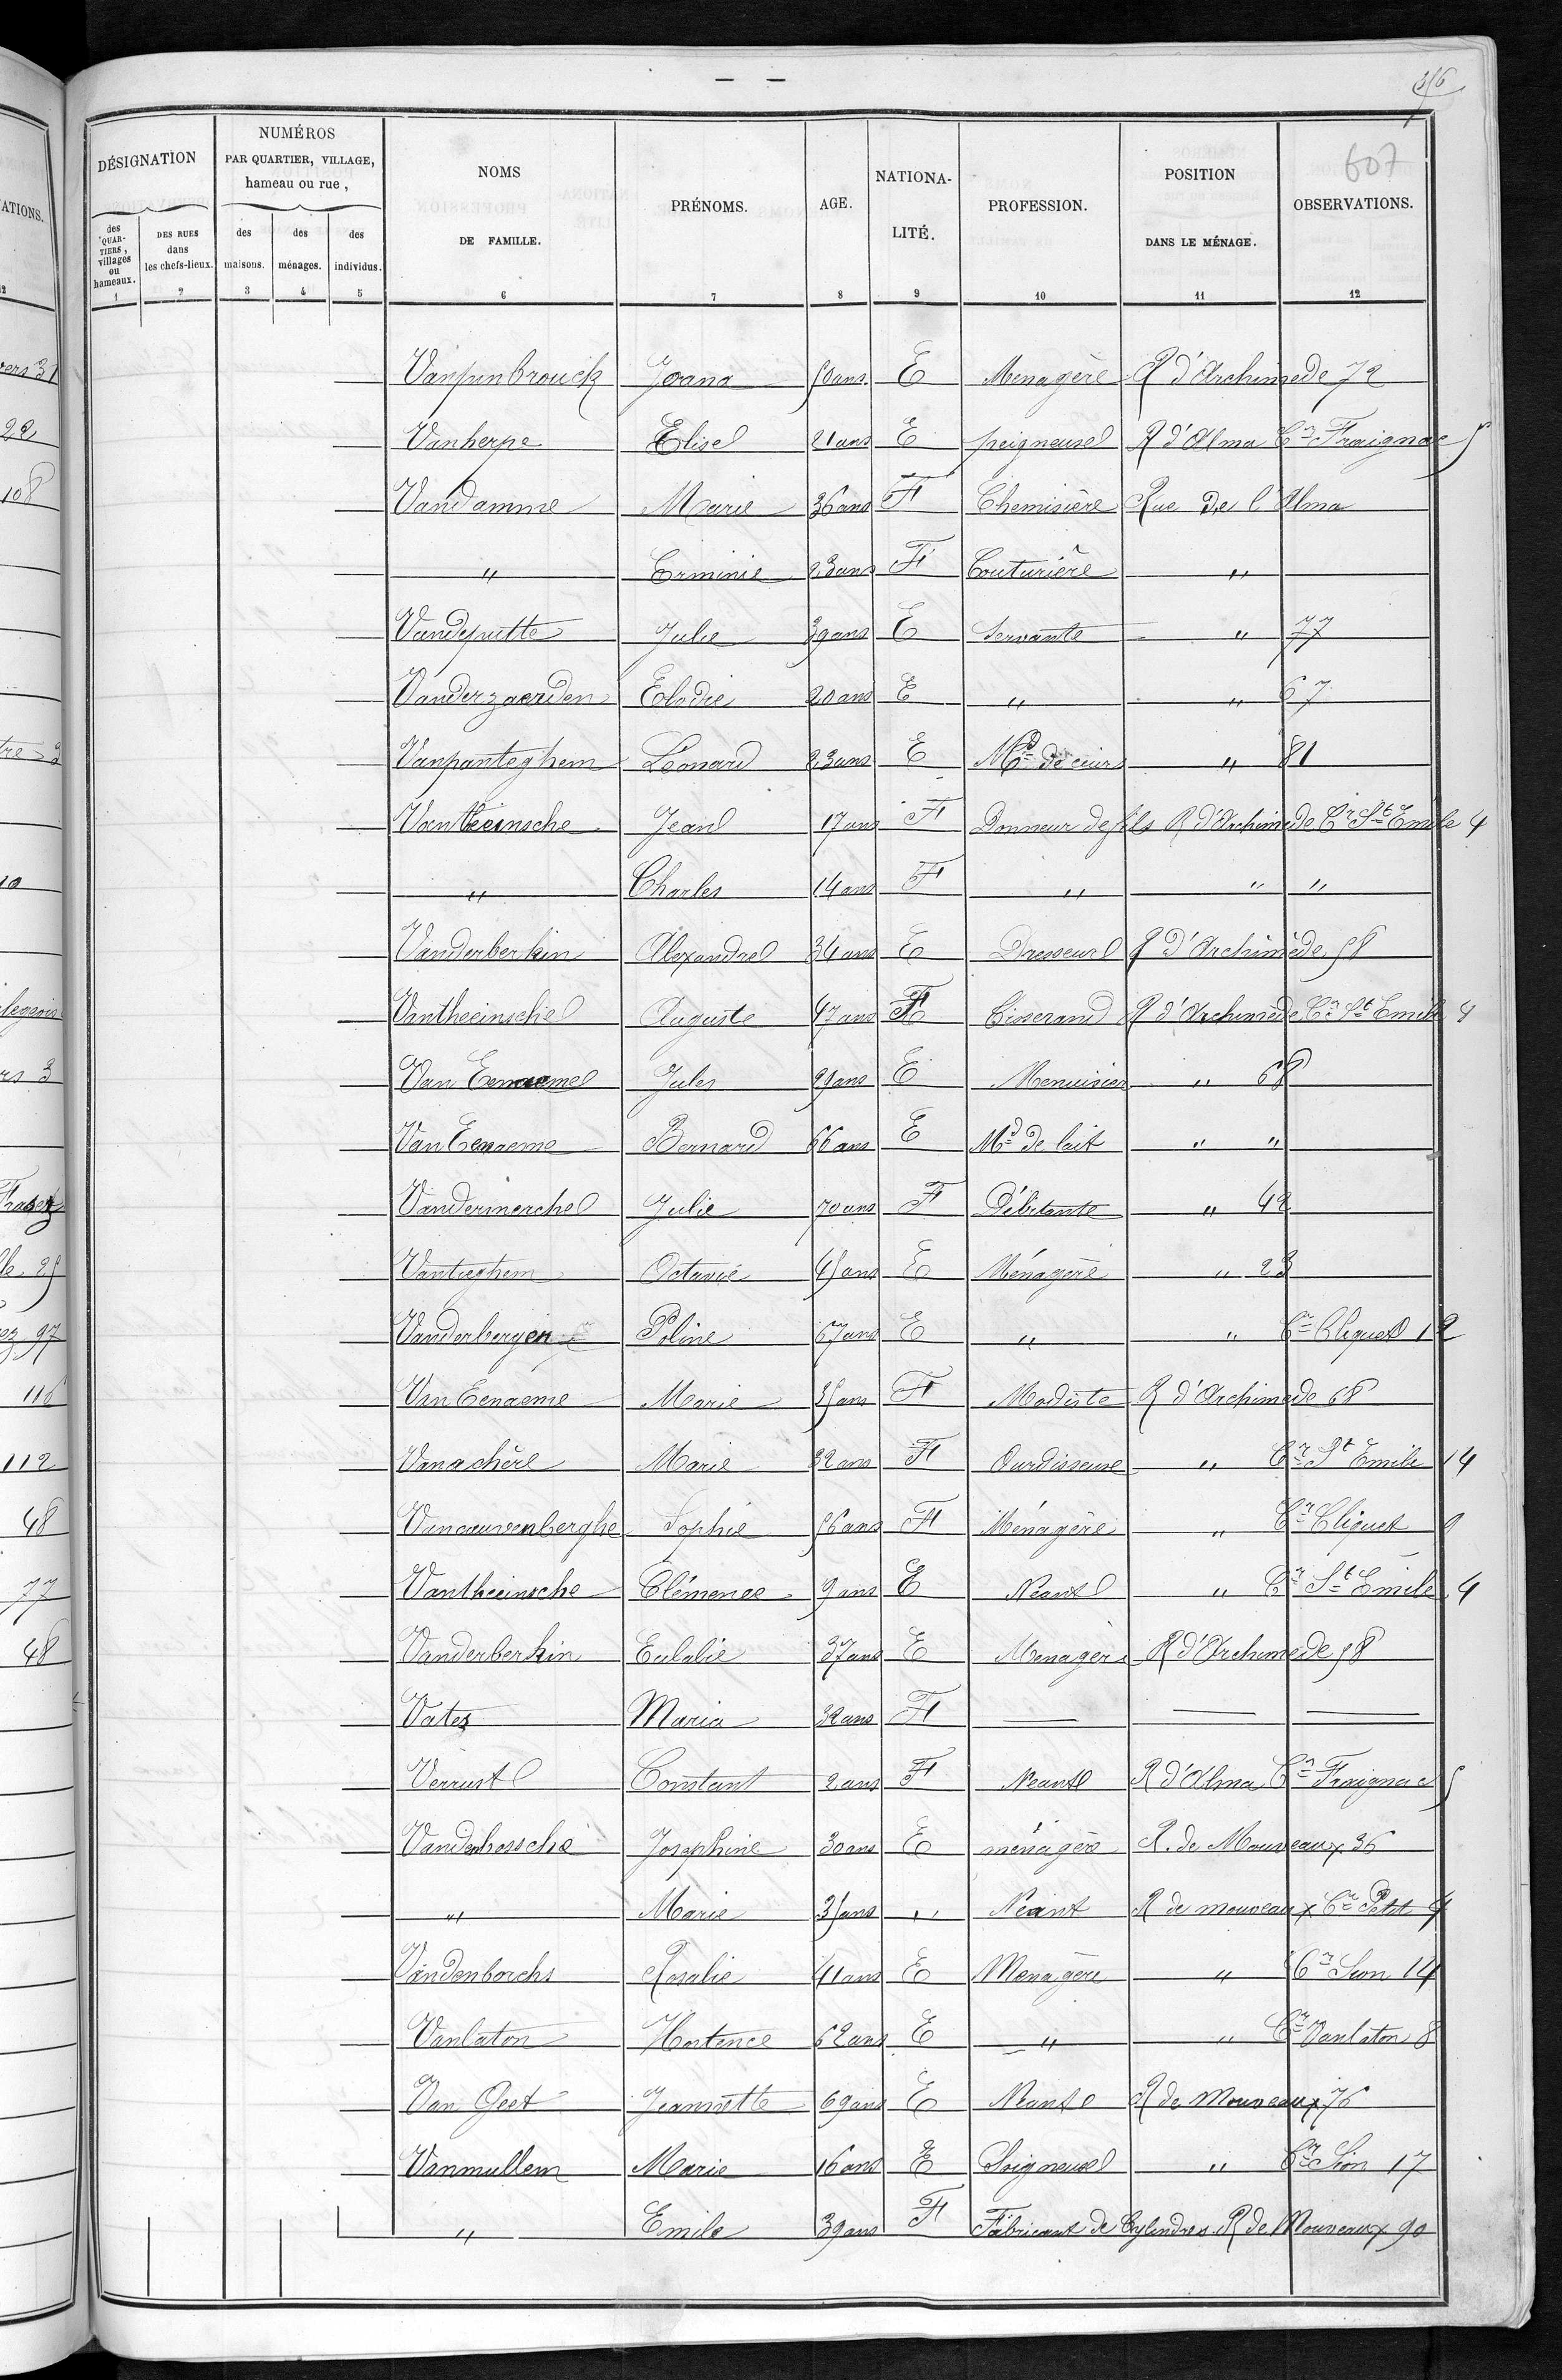 356
607
DÉSIGNATION
NUMÉROS
PAR QUARTIER, VILLAGE,
hameau ou rue,
NOMS
DE FAMILLE.
PRÉNOMS.
AGE.
NATIONA-
LITÉ.
PROFESSION.
POSITION
DANS LE MÉNAGE.
OBSERVATIONS.
des
QUAR-
TIERS,
villages
ou
hameaux.
DES RUES
dans
les chefs-lieux.
des
maisons.
des
ménages.
des
individus.
1 2 3 4 5 6 7 8 9 10 11 12
Joana 50 ans E Menagère R d'Archimede 72
Vanherpe Elise 21 ans E peigneuse R d'Alma Cr Fraignac 5
Vandamme Marie 36 ans F Chemisière Rue de l'Alma
" Erminie 23 ans F Couturière "
Vandeputte Julie 39 ans E Servante " 77
Vanderzaerden Elodie 20 ans E " " 67
Vanpanteghem Léonard 23 ans E Md de cuirs " 81
Vantheeinsche Jean 17 ans F Donneur de fils R d'Archimede Cr St Emile 4
" Charles 14 ans F " " "
Vanderberkin Alexandre 34 ans E Dresseur R d'Archimède 58
Vantheeinsche Auguste 47 ans F Tisserand R d'Archimède Cr St Emile 4
Van Eenaeme Jules 25 ans E Menuisier " 68
Van Eenaeme Bernard 66 ans E Md de lait " "
Vandermerche Julie 70 ans F Débitante " 42
Vantieghem Octavie 45 ans E Ménagère " 23
Vanderbergen Poline 67 ans E " " Cr Cliquet 12
Van Eenaeme Marie 35 ans F Modiste R d'Archimede 68
Vanachère Marie 32 ans F Ourdisseuse " Cr St Emile 14
Vancauwenberghe Sophie 56 ans F Ménagère " Cr Cliquet 9
Vantheeinsche Clémence 9 ans E Néant " Cr St Emile 4
Vanderberkin Eulalie 37 ans E Menagère R d'Archimede 58
Vatez Maria 32 ans F
Verrust Constant 2 ans F Neant R d'Alma Cr Fraignac 5
Vandenbossche Josephine 30 ans E ménagère R. de Mouveaux 36
" Marie 35 ans " Néant R de mouveaux Cr Petit 4
Vandenborchs Rosalie 41 ans E Menagère " Cr Sion 14
Vanlaton Hortence 62 ans E " " Cr Vanlaton 8
Van Geet Jeannette 69 ans E Néant R de Mouveaux 76
Vanmullem Marie 16 ans E Soigneuse " Cr Sion 17
" Emile 39 ans F Fabricant de Cylindres R de Mouveaux 90